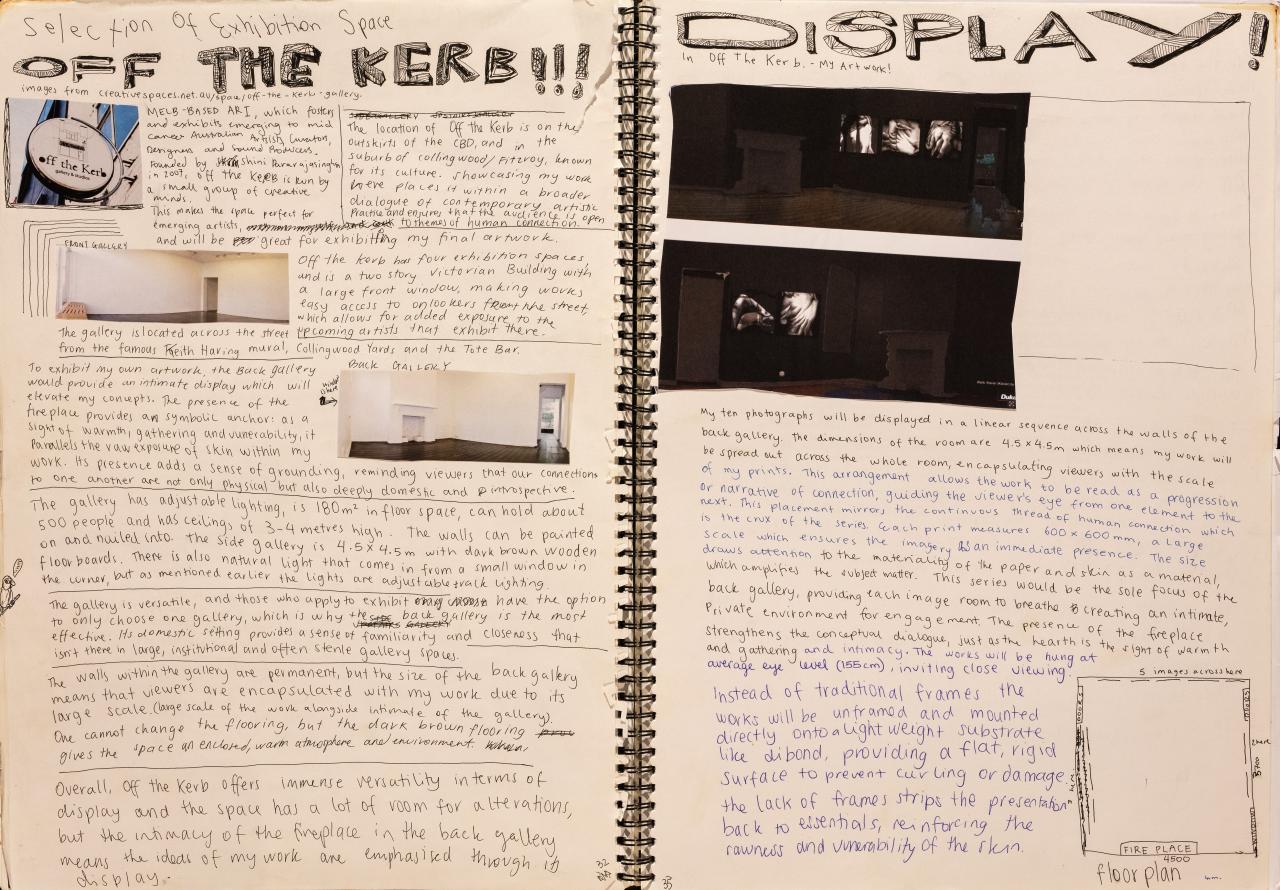 Selection Of Exhibition Space
OFF THE KERB!!!
images from creativespaces.net.au/space/off-the-kerb-gallery.
off the Kerb
gallery & studios
MELB-BASED ARI, which fosters
and exhibits emerging to mid
career Australian Artists, Curators,
Designers and Sound Producers.
Founded by Shini Pararajasingham
in 2007, Off the KERB is run by
a small group of creative
minds.
This makes the space perfect for
emerging artists,
and will be great for exhibiting my final artwork.
The location of Off the Kerb is on the
outskirts of the CBD, and in the
suburb of Collingwood/Fitzroy, known
for its culture. Showcasing my work
here places it within a broader
dialogue of contemporary artistic
practice and ensures that the audience is open
to themes of human connection.
FRONT GALLERY
Off the Kerb has four exhibition spaces
and is a two story Victorian Building with
a large front window, making works
easy access to onlookers from the street,
which allows for added exposure to the
upcoming artists that exhibit there.
The gallery is located across the street
from the famous Keith Haring mural, Collingwood Yards and the Tote Bar.
To exhibit my own artwork, the Back gallery
would provide an intimate display which will
elevate my concepts. The presence of the
fireplace provides a symbolic anchor: as a
sight of warmth, gathering and vunerability, it
Parallels the raw exposure of skin within my
work. Its presence adds a sense of grounding, reminding viewers that our connections
to one another are not only physical but also deeply domestic and introspective.
BACK GALLERY
window is here
The gallery has adjustable lighting, is 180m² in floor space, can hold about
500 people and has ceilings of 3-4 metres high. The walls can be painted
on and nailed into. The side gallery is 4.5 x 4.5m with dark brown wooden
floor boards. There is also natural light that comes in from a small window in
the corner, but as mentioned earlier the lights are adjustable track lighting.
The gallery is versatile, and those who apply to exhibit have the option
to only choose one gallery, which is why the back gallery is the most
effective. Its domestic setting provides a sense of familiarity and closeness that
isn't there in large, institutional and often sterile gallery spaces.
The walls within the gallery are permanent, but the size of the back gallery
means that viewers are encapsulated with my work due to its
large scale. (large scale of the work alongside intimate of the gallery).
One cannot change the flooring, but the dark brown flooring
gives the space an enclosed, warm atmosphere and environment.
Overall, Off the Kerb offers immense versatility in terms of
display and the space has a lot of room for alterations,
but the intimacy of the fireplace in the back gallery
means the ideas of my work are emphasised through its
display.
32
DISPLAY!
In Off The Kerb. - My Artwork!
My ten photographs will be displayed in a linear sequence across the walls of the
back gallery. the dimensions of the room are 4.5 x 4.5m which means my work will
be spread out across the whole room, encapsulating viewers with the scale
of my prints. This arrangement allows the work to be read as a progression
or narrative of connection, guiding the viewer's eye from one element to the
next. This placement mirrors the continuous thread of human connection which
is the crux of the series. Each print measures 600 x 600mm, a large
scale which ensures the imagery has an immediate presence. The size
draws attention to the materiality of the paper and skin as a material,
which amplifies the subject matter. This series would be the sole focus of the
back gallery, providing each image room to breathe & creating an intimate,
Private environment for engagement. The presence of the fireplace
strengthens the conceptual dialogue, just as the hearth is the sight of warmth
and gathering and intimacy. The works will be hung at
average eye level (155cm), inviting close viewing.
Instead of traditional frames the
works will be unframed and mounted
directly onto a light weight substrate
like dibond, providing a flat, rigid
surface to prevent curling or damage.
the lack of frames strips the presentation
back to essentials, reinforcing the
rawness and vunerability of the skin.
5 images across here
2 here
FIRE PLACE
4500
floor plan
33